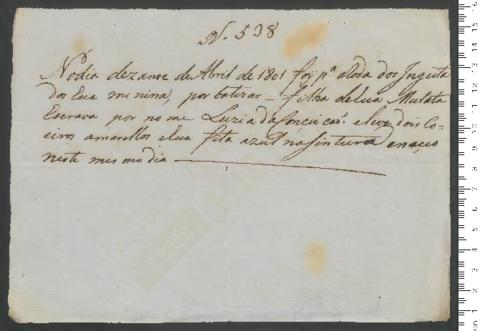 N. 538
No dia dezanove de Abril de 1801 foy pª aRoda dos Ingeita
dos Eua menina, por batizar filha de hua Mulata
Escrava por nome Luzia da Conçeicaõ. eleva dois Co-
eiros amarellos e hua fita azul na sintura enaçeo
neste mes mo dia